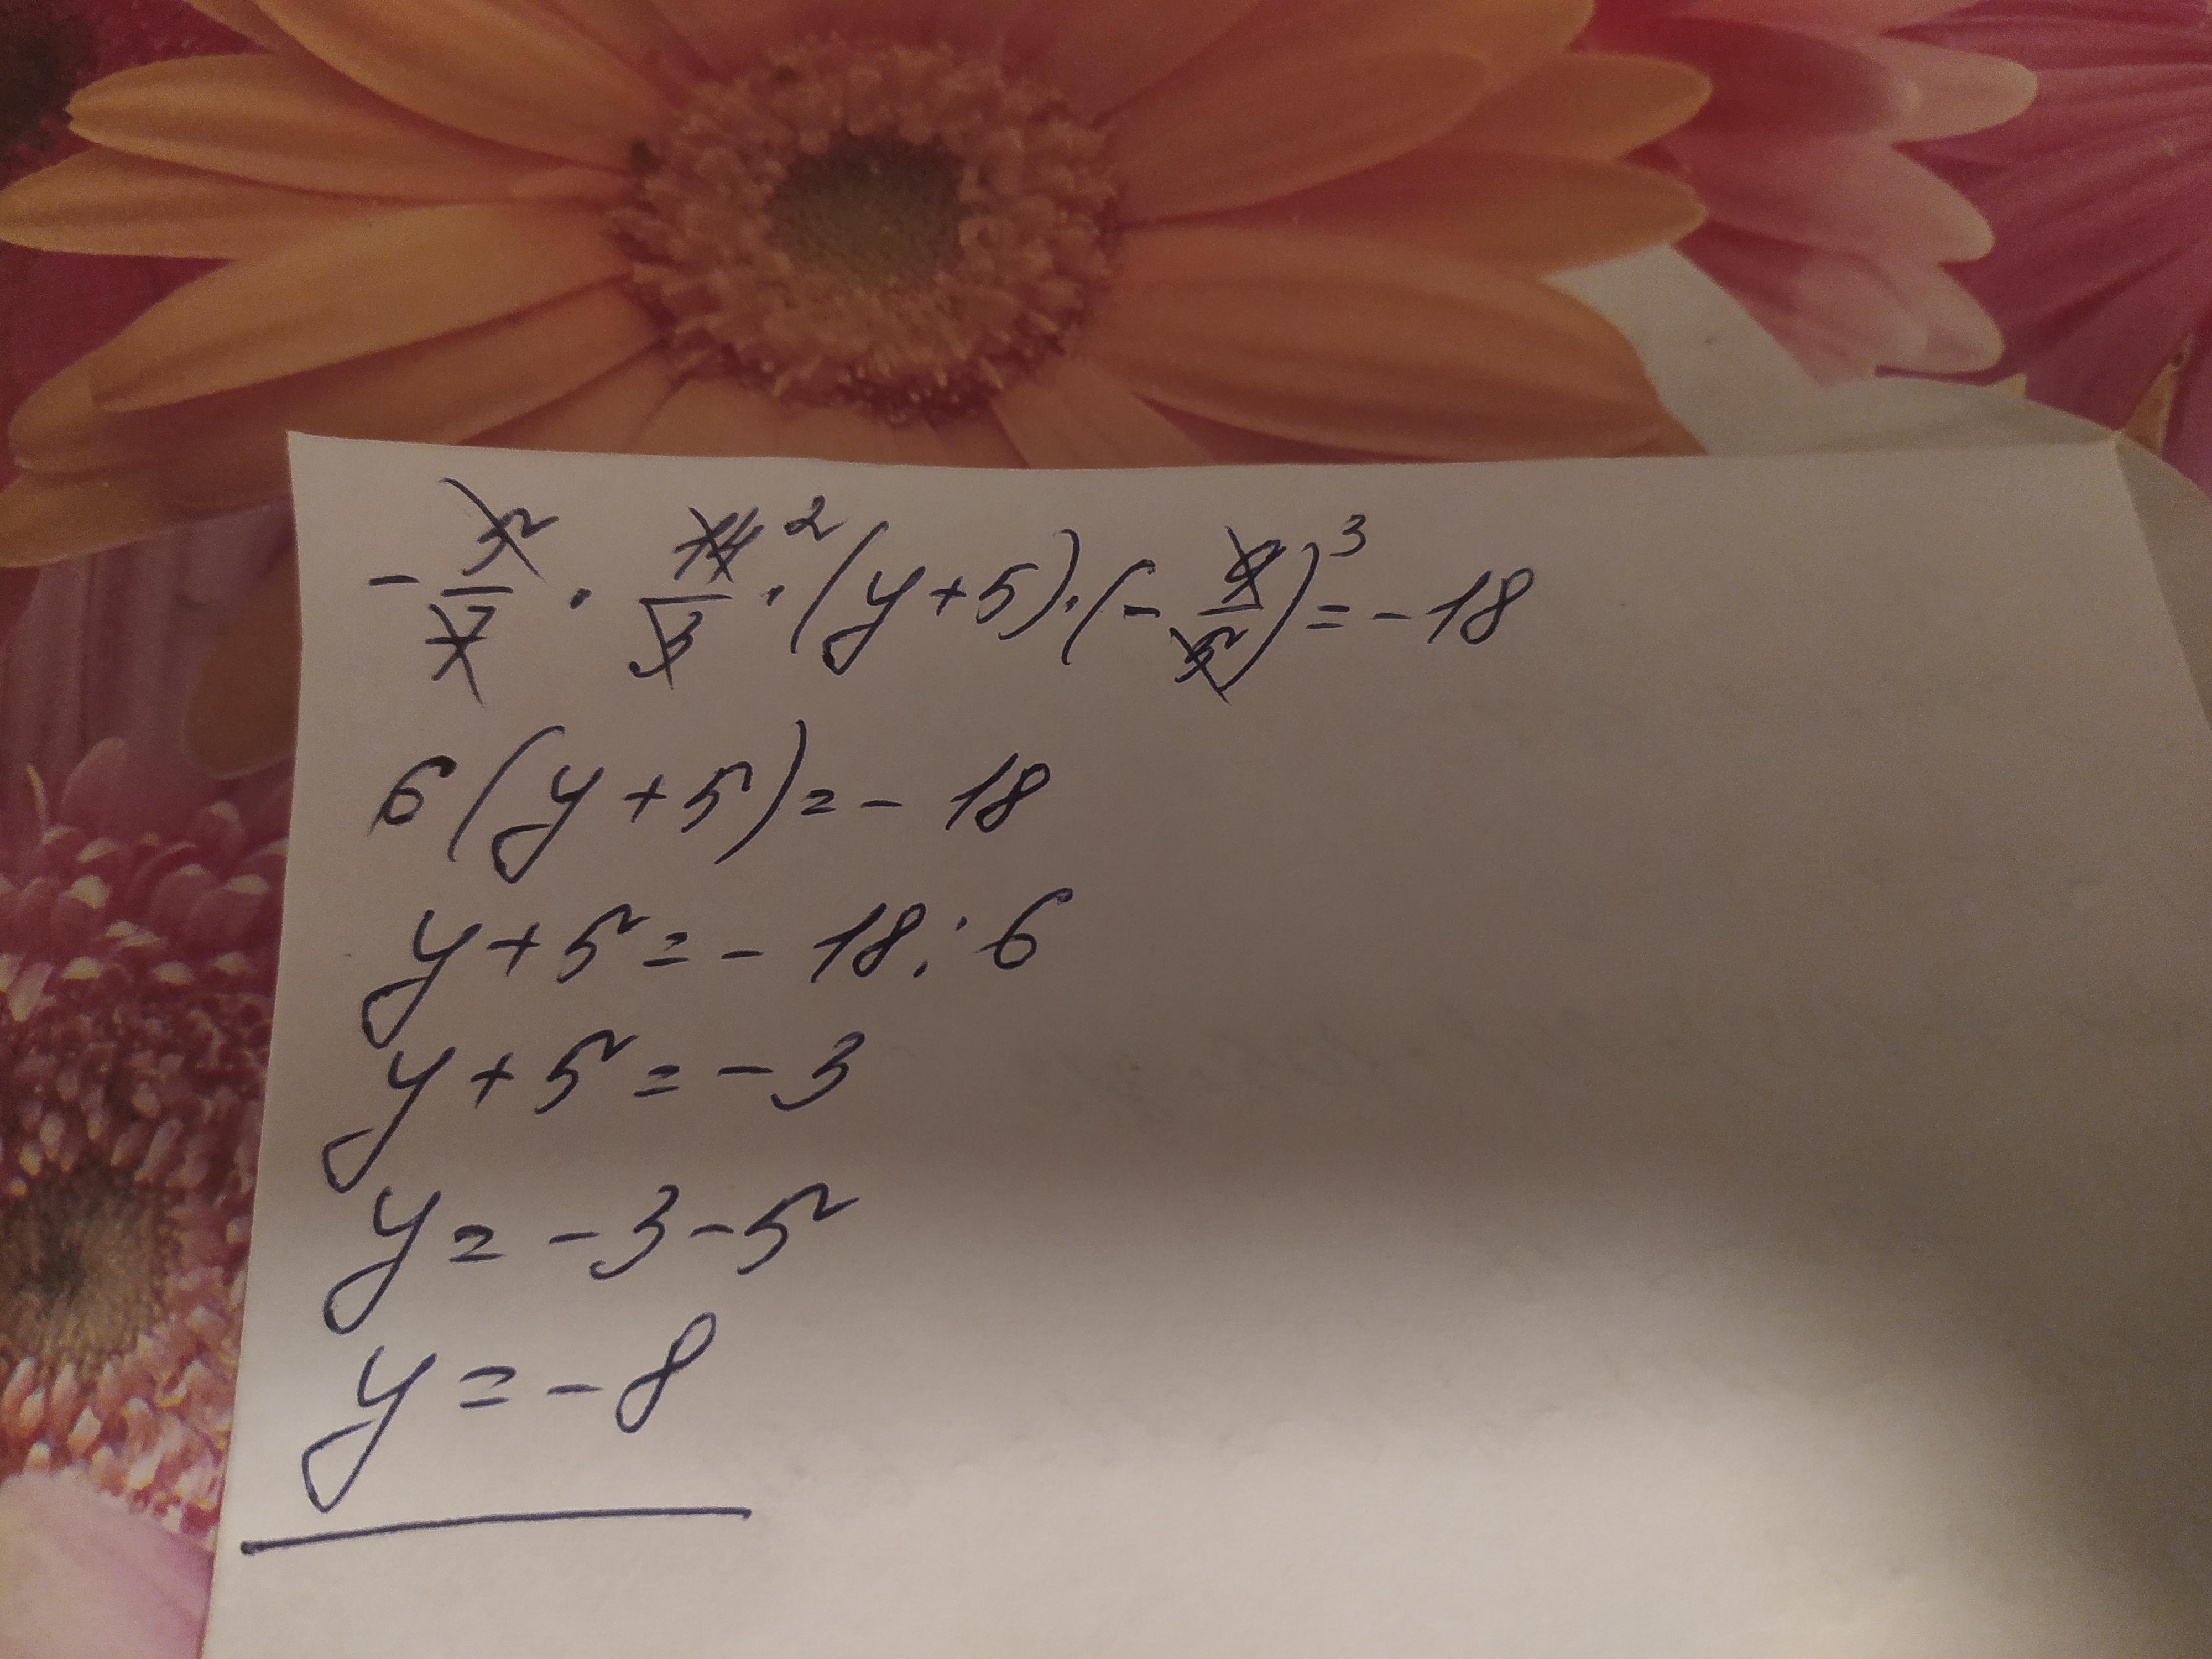 - 5/7 · 14/3 ² · (y+5) · (- 9/5) ³ = - 18
6(y+5) = - 18
y+5 = - 18 : 6
y+5 = - 3
y = - 3 - 5
y = - 8